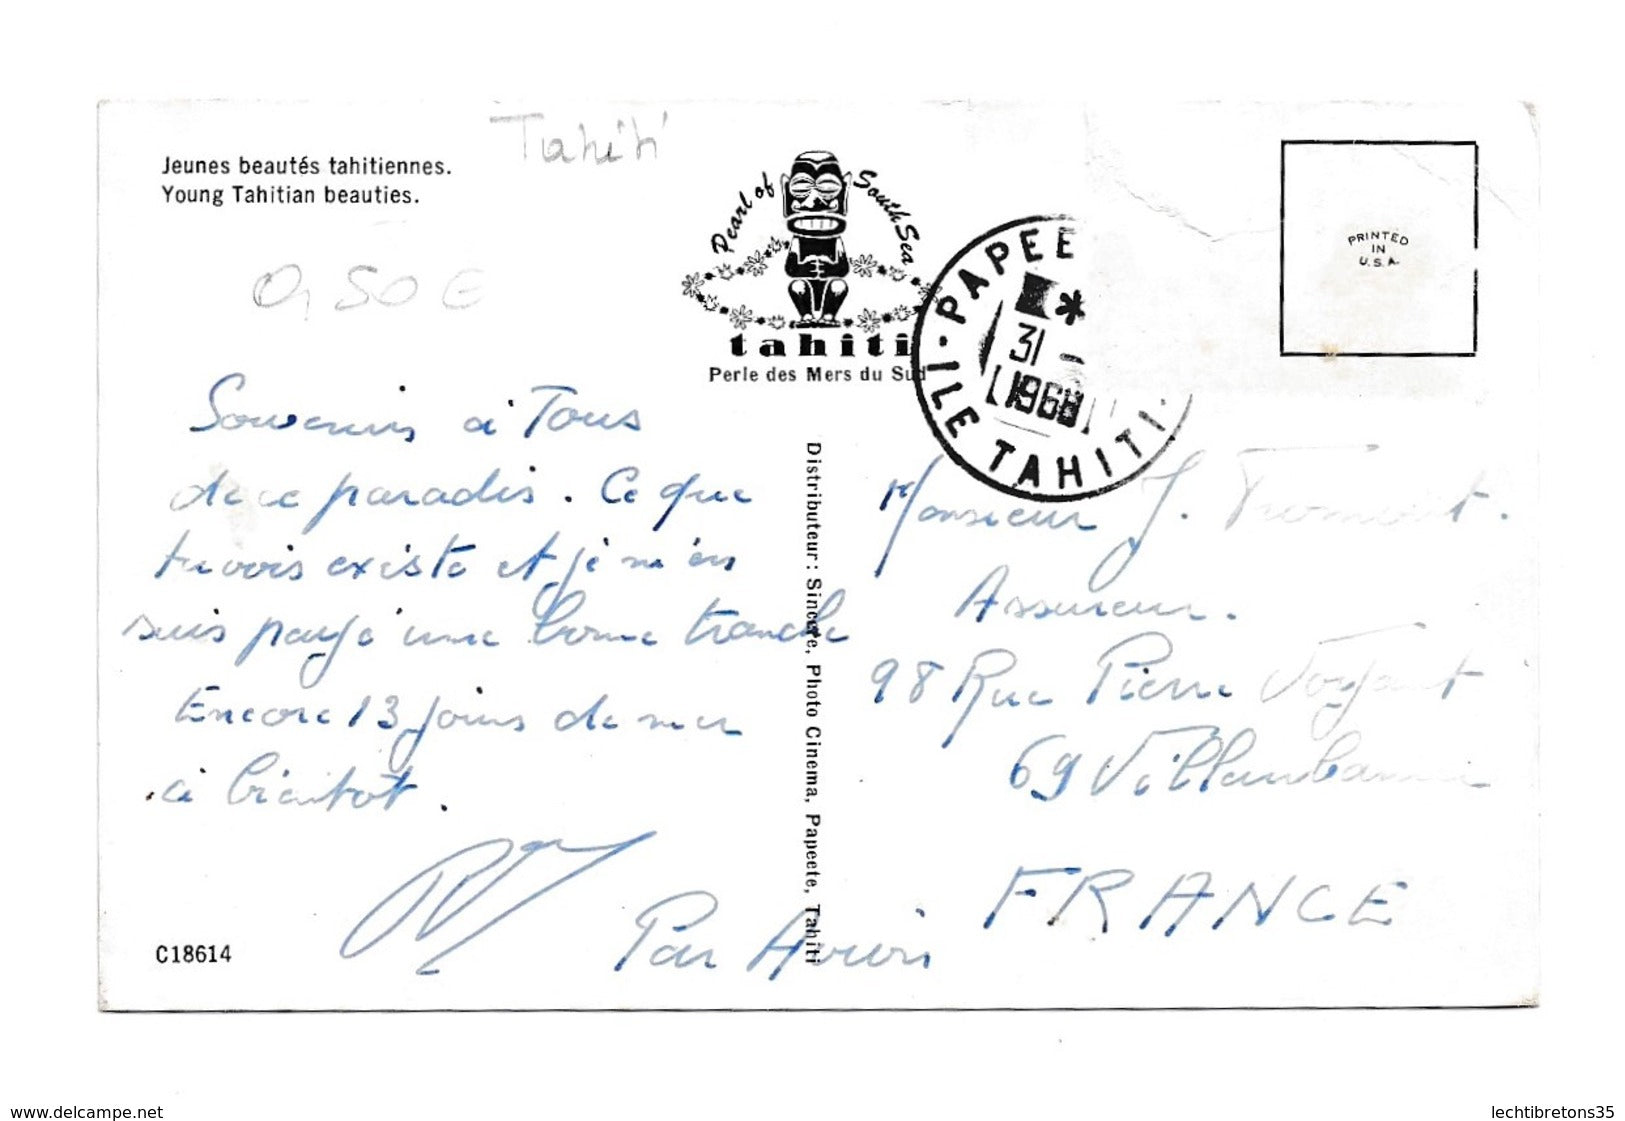 Jeunes beautés tahitiennes.
Young Tahitian beauties.
Tahiti
0,50 €
Pearl of South Sea
tahiti
Perle des Mers du Sud
PAPEE
* 31 -
1968
ILE TAHITI
PRINTED
IN
U.S.A.
Souvenirs à Tous
de ce paradis. Ce que
tu vois existe et je m'en
suis payé une bonne tranche
Encore 13 jours de mer
à bientot.
Par Avion
C18614
Distributeur: Sincère, Photo Cinema, Papeete, Tahiti
Monsieur J. Fromont.
Assureur.
98 Rue Pierre Voyant
69 Villeurbanne
FRANCE
www.delcampe.net
lechtibretons35